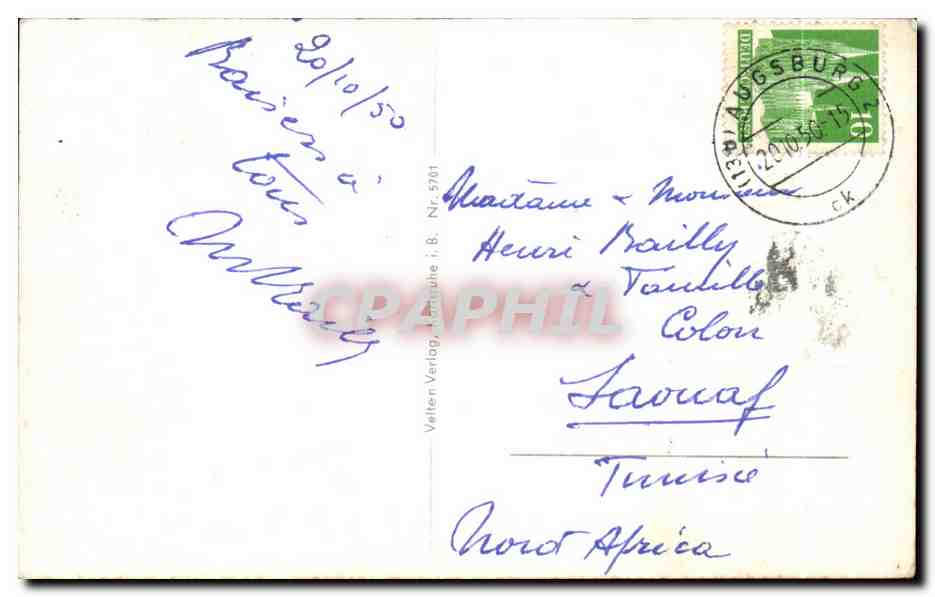 20/10/50
Baisers à
tous
Velten Verlag, Karlsruhe i. B. Nr. 5701
DEUTSCHE
10
(13b) AUGSBURG 2
20.10.50.-15
ck
Madame & Monsieur
Henri Bailly
& Famille
Colon
Saouaf
Tunisie
Nord Africa
CPAPHIL